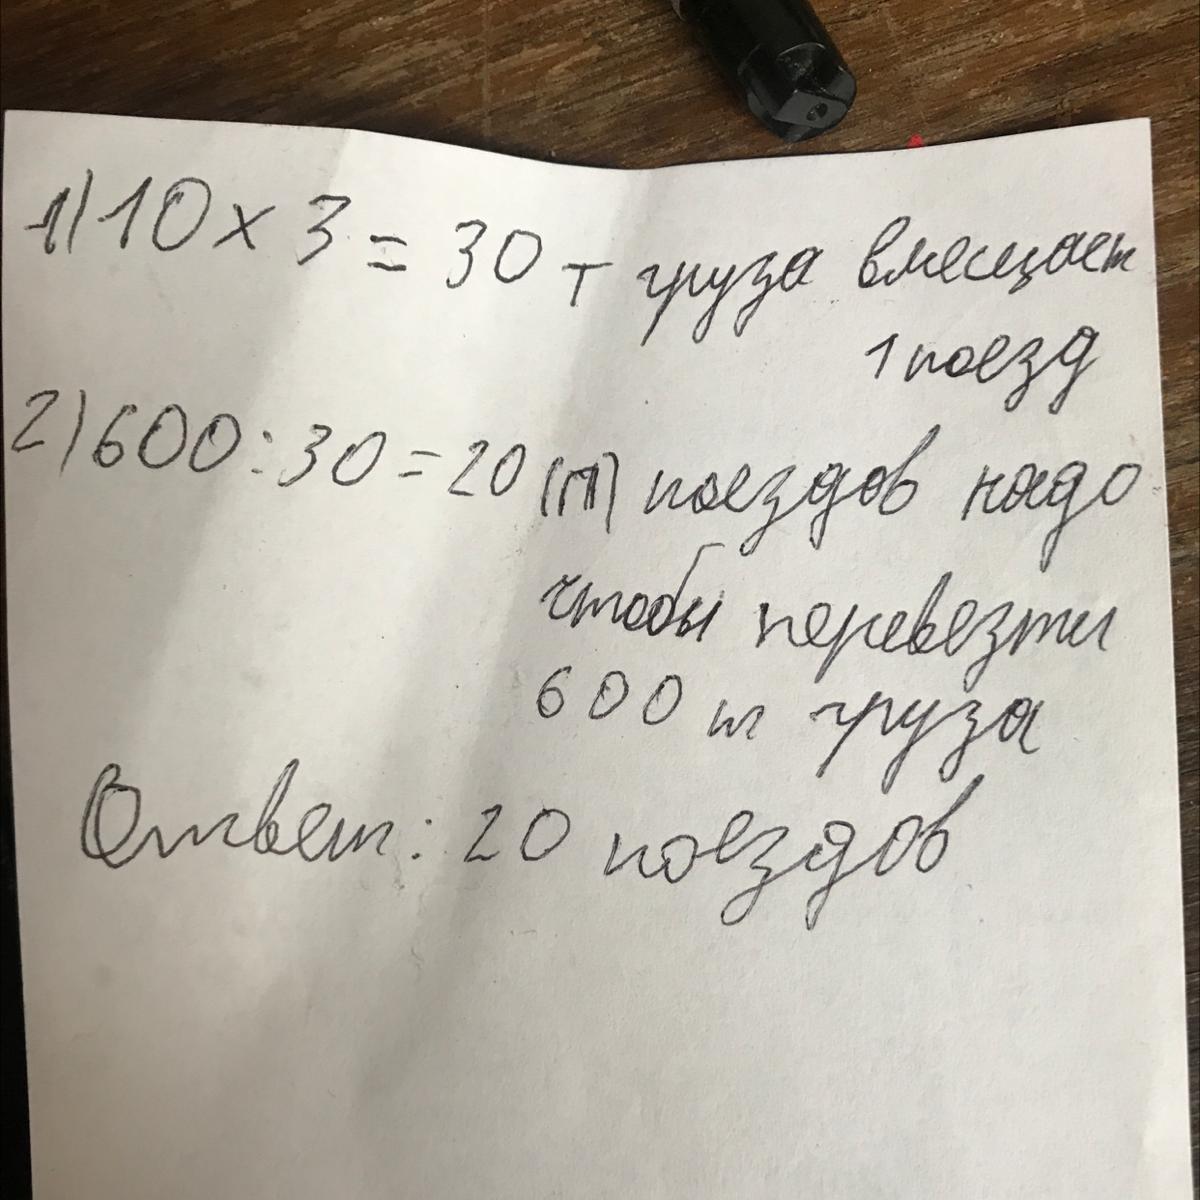 1) 10 × 3 = 30 т груза вмещает
1 поезд
2) 600 : 30 = 20 (п) поездов надо
чтобы перевезти
600 т груза
Ответ: 20 поездов